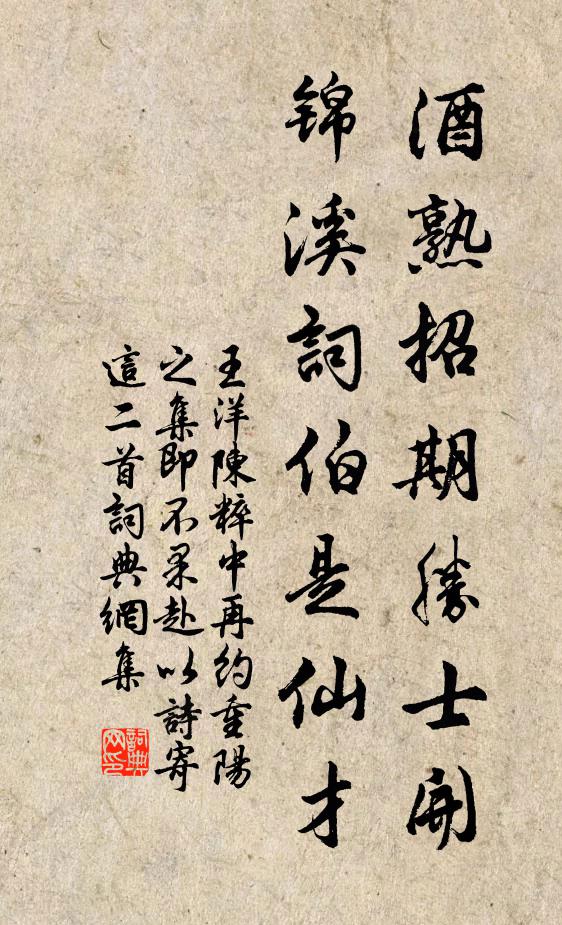 酒熟招期勝士開
锦溪詞伯是仙才
王洋陳粹中再約重陽
之集即不果赴以詩寄
這二首詞典網集
詞典
网印